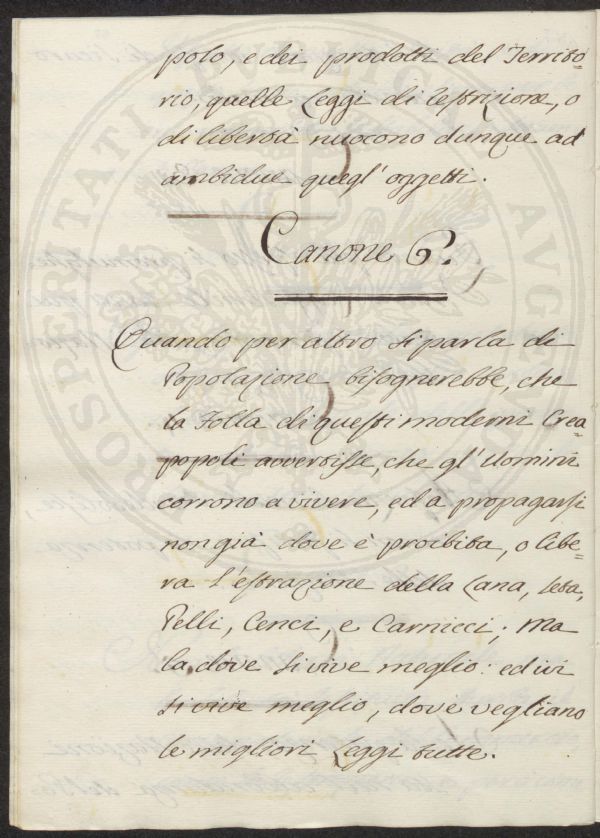 polo, e dei prodotti del Territo-
rio, quelle Leggi di restrizione, o
di libertà nuocono dunque ad
ambidue quegl' oggetti.
Canone 6.
Quando per altro si parla di
Popolazione bisognerebbe, che
la Folla di questi moderni Crea-
popoli avvertisse, che gl' Uomini
corrono a vivere, ed a propagarsi
non già dove è proibita, o libe-
ra l'estrazione della Lana, seta,
Pelli, Cenci, e Carnicci; Ma
la dove si vive meglio: ed ivi
si vive meglio, dove vegliano
le migliori Leggi tutte.
PROSPERITATI PVBLICAE AVGENDAE